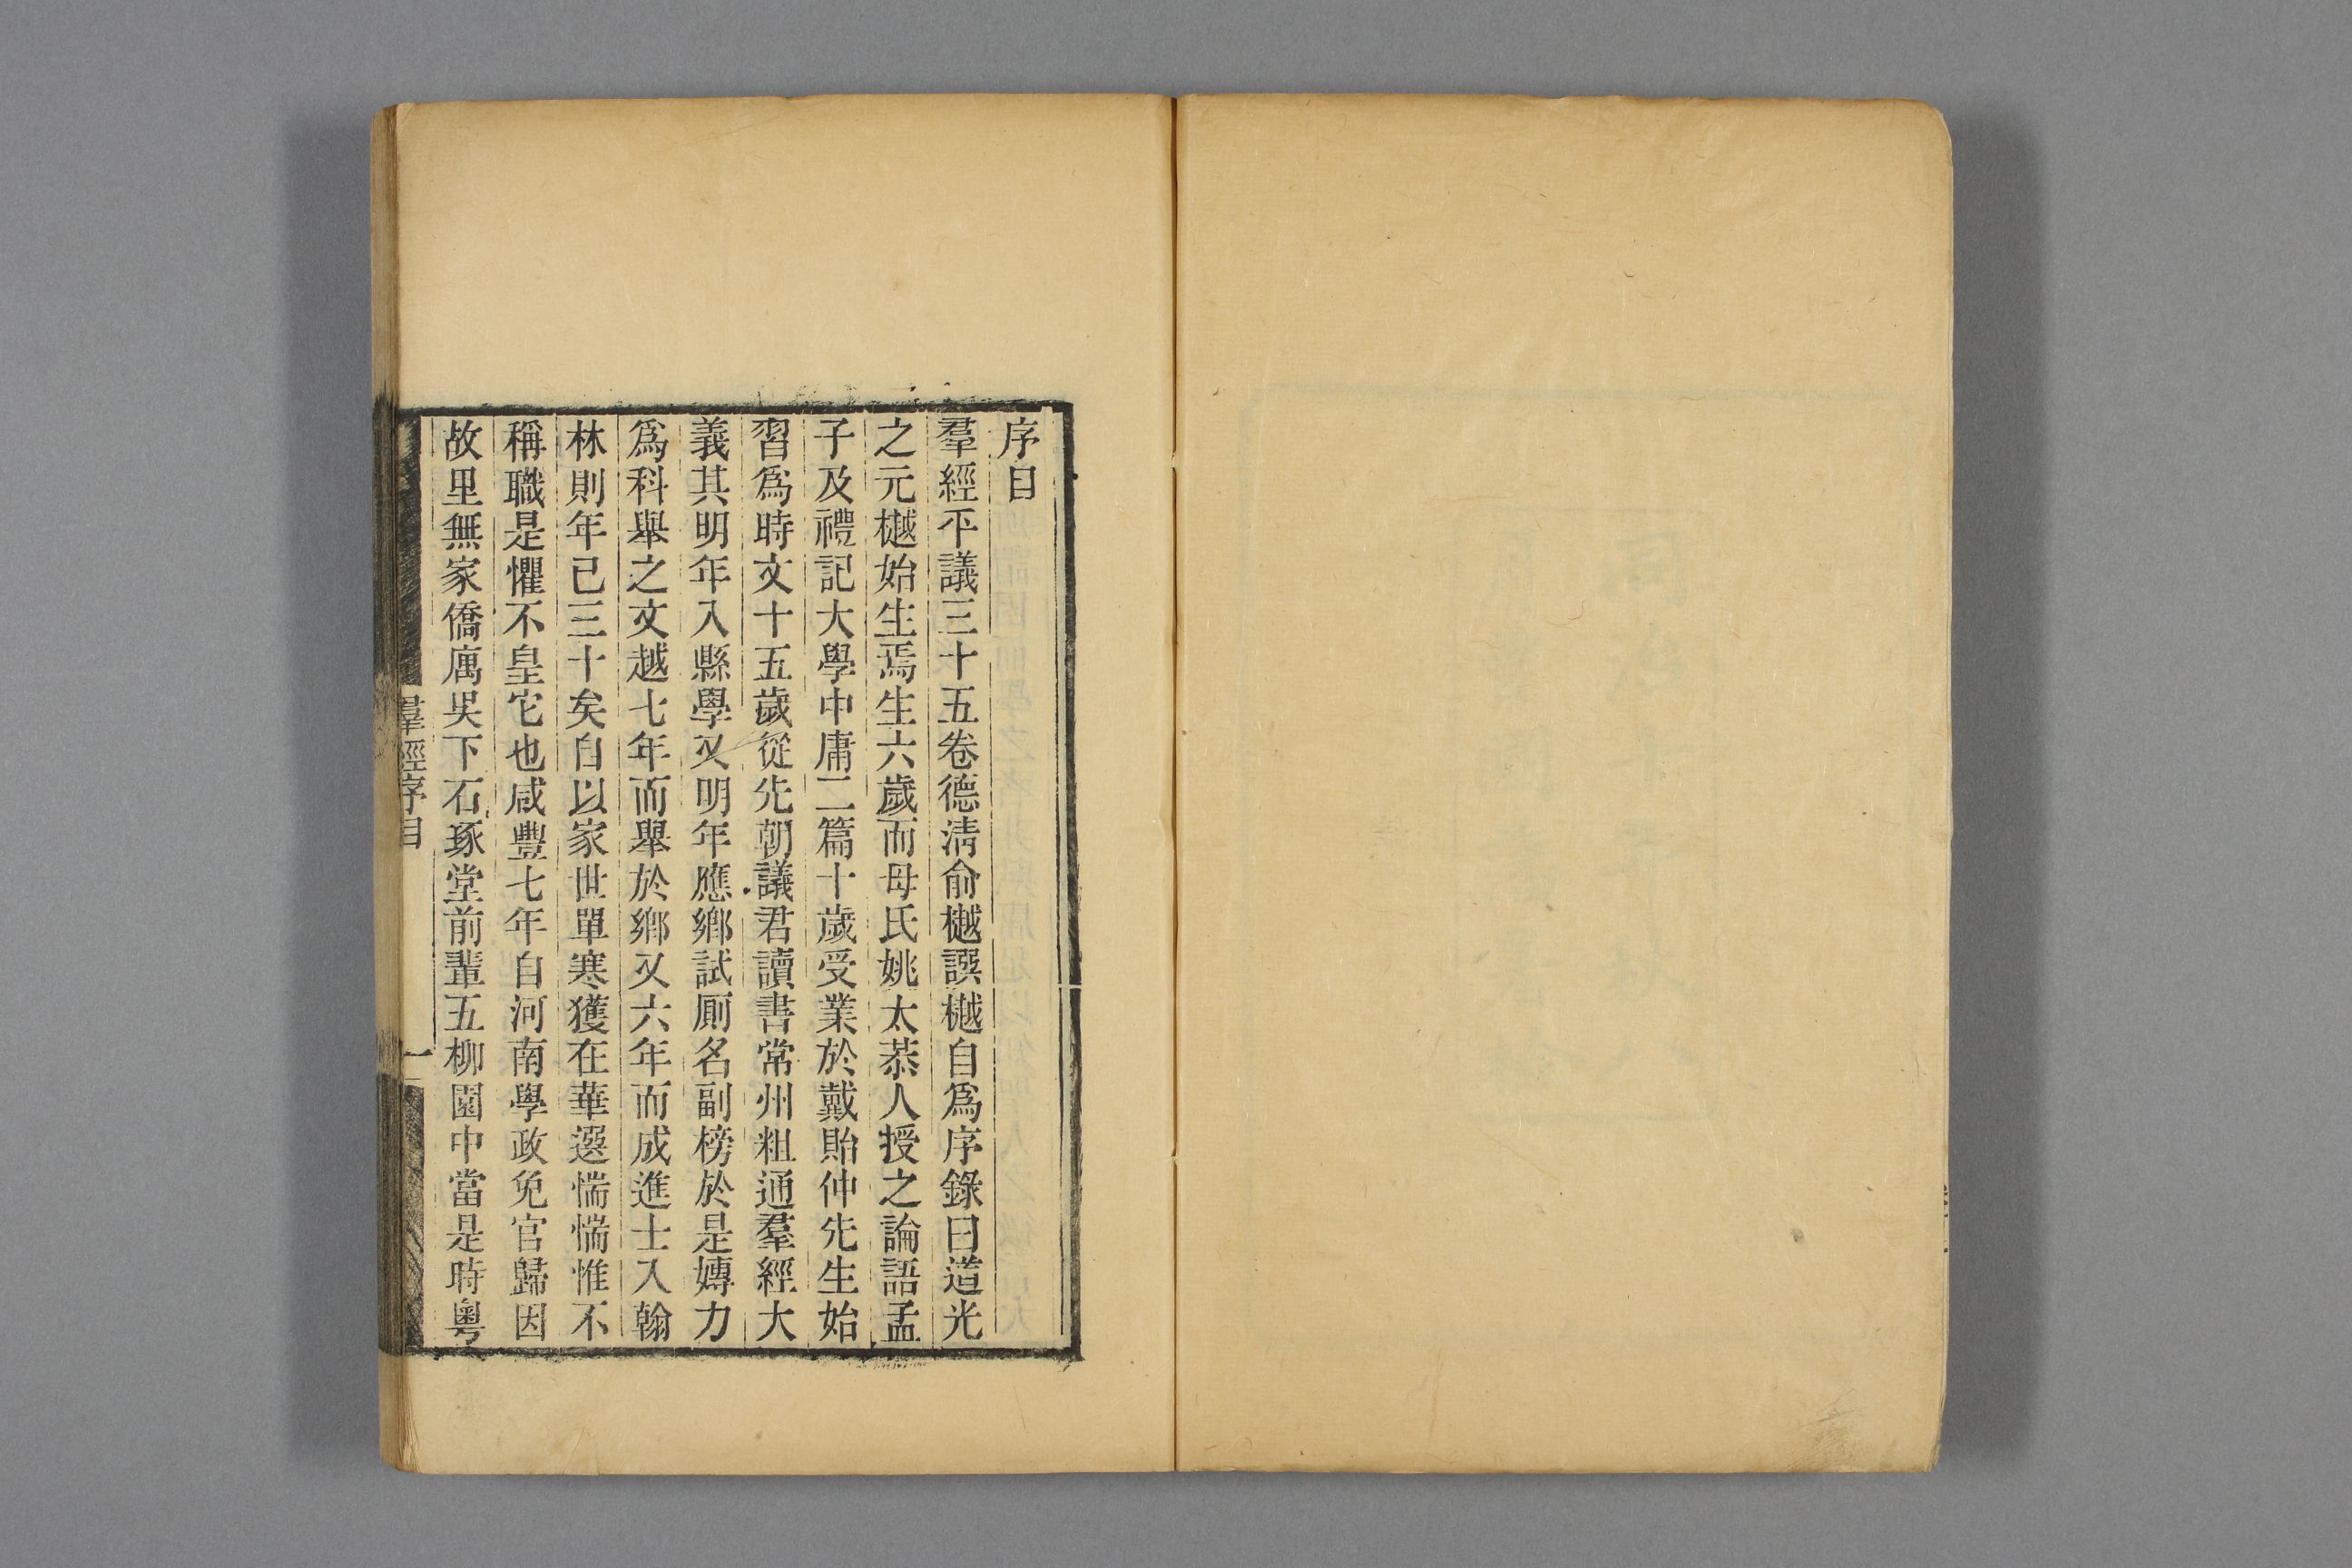 序目
羣經平議三十五卷德淸俞樾譔樾自爲序錄曰道光
之元樾始生焉生六歲而母氏姚太恭人授之論語孟
子及禮記大學中庸二篇十歲受業於戴貽仲先生始
習爲時文十五歲從先朝議君讀書常州粗通羣經大
義其明年入縣學又明年應鄕試厠名副榜於是嫥力
爲科舉之文越七年而舉於鄕又六年而成進士入翰
林則年已三十矣自以家世單寒獲在華選惴惴惟不
稱職是懼不皇它也咸豐七年自河南學政免官歸因
故里無家僑厲吳下石琢堂前輩五柳園中當是時粵
羣經序目
一